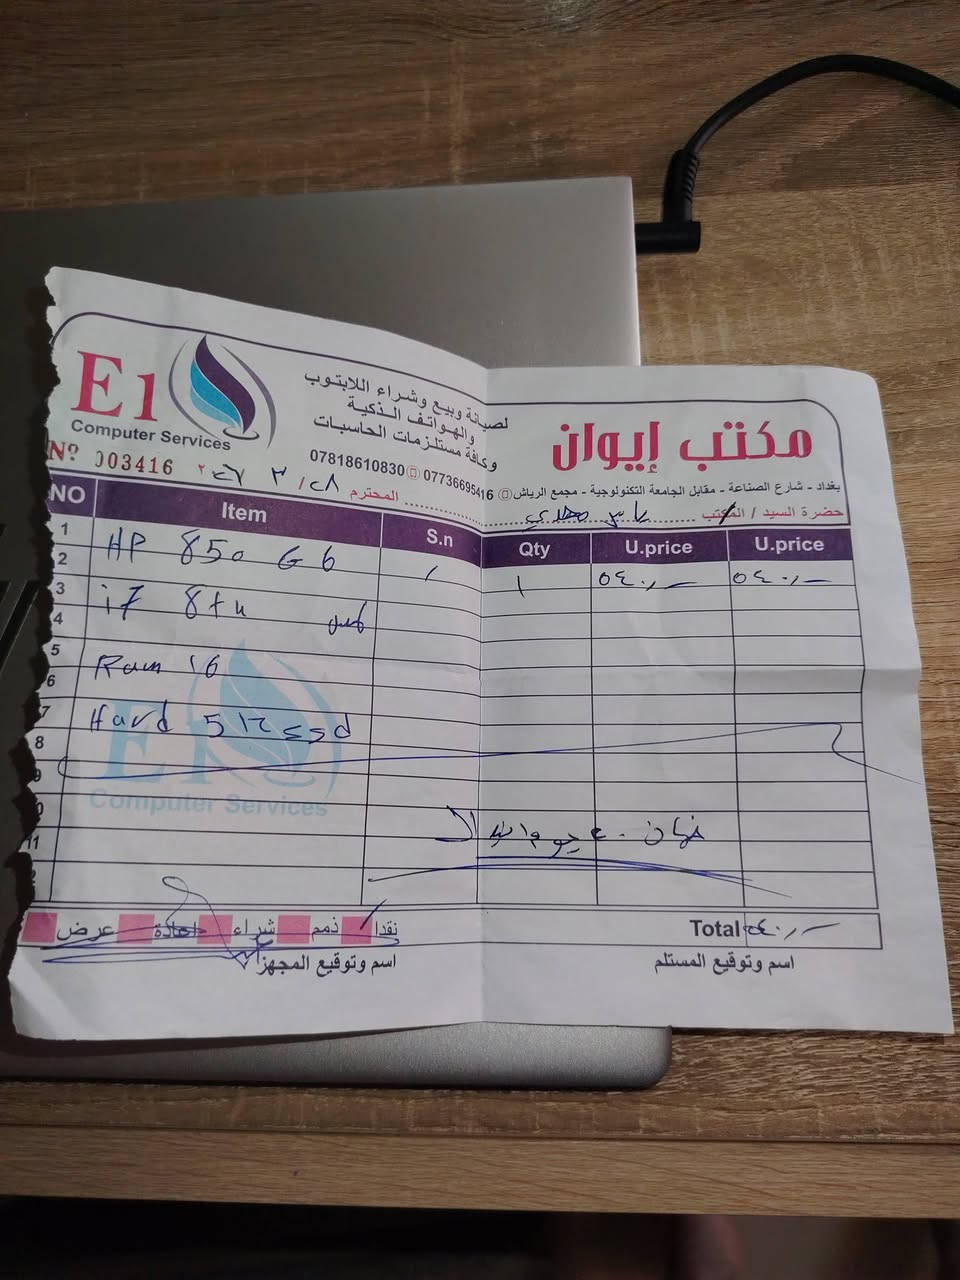 E1
Computer Services
لصيانة وبيع وشراء اللابتوب
والهواتف الذكية
وكافة مستلزمات الحاسبات
07818610830 07736695416
مكتب إيوان
بغداد - شارع الصناعة - مقابل الجامعة التكنولوجية - مجمع الرياش
Nº 003416
حضرة السيد / المكتب المحترم
NO Item S.n Qty U.price U.price
1 HP 850 G6 / ١ ٥٤٠,— ٥٤٠,—
2
3 i7 8th لمس
4
5 Ram 16
6
7 Hard 512 ssd
8
9
10
11 ضمان
12
E1
Computer Services
نقدا ذمم شراء اعادة عرض
Total ٥٤٠,—
اسم وتوقيع المجهز
اسم وتوقيع المستلم